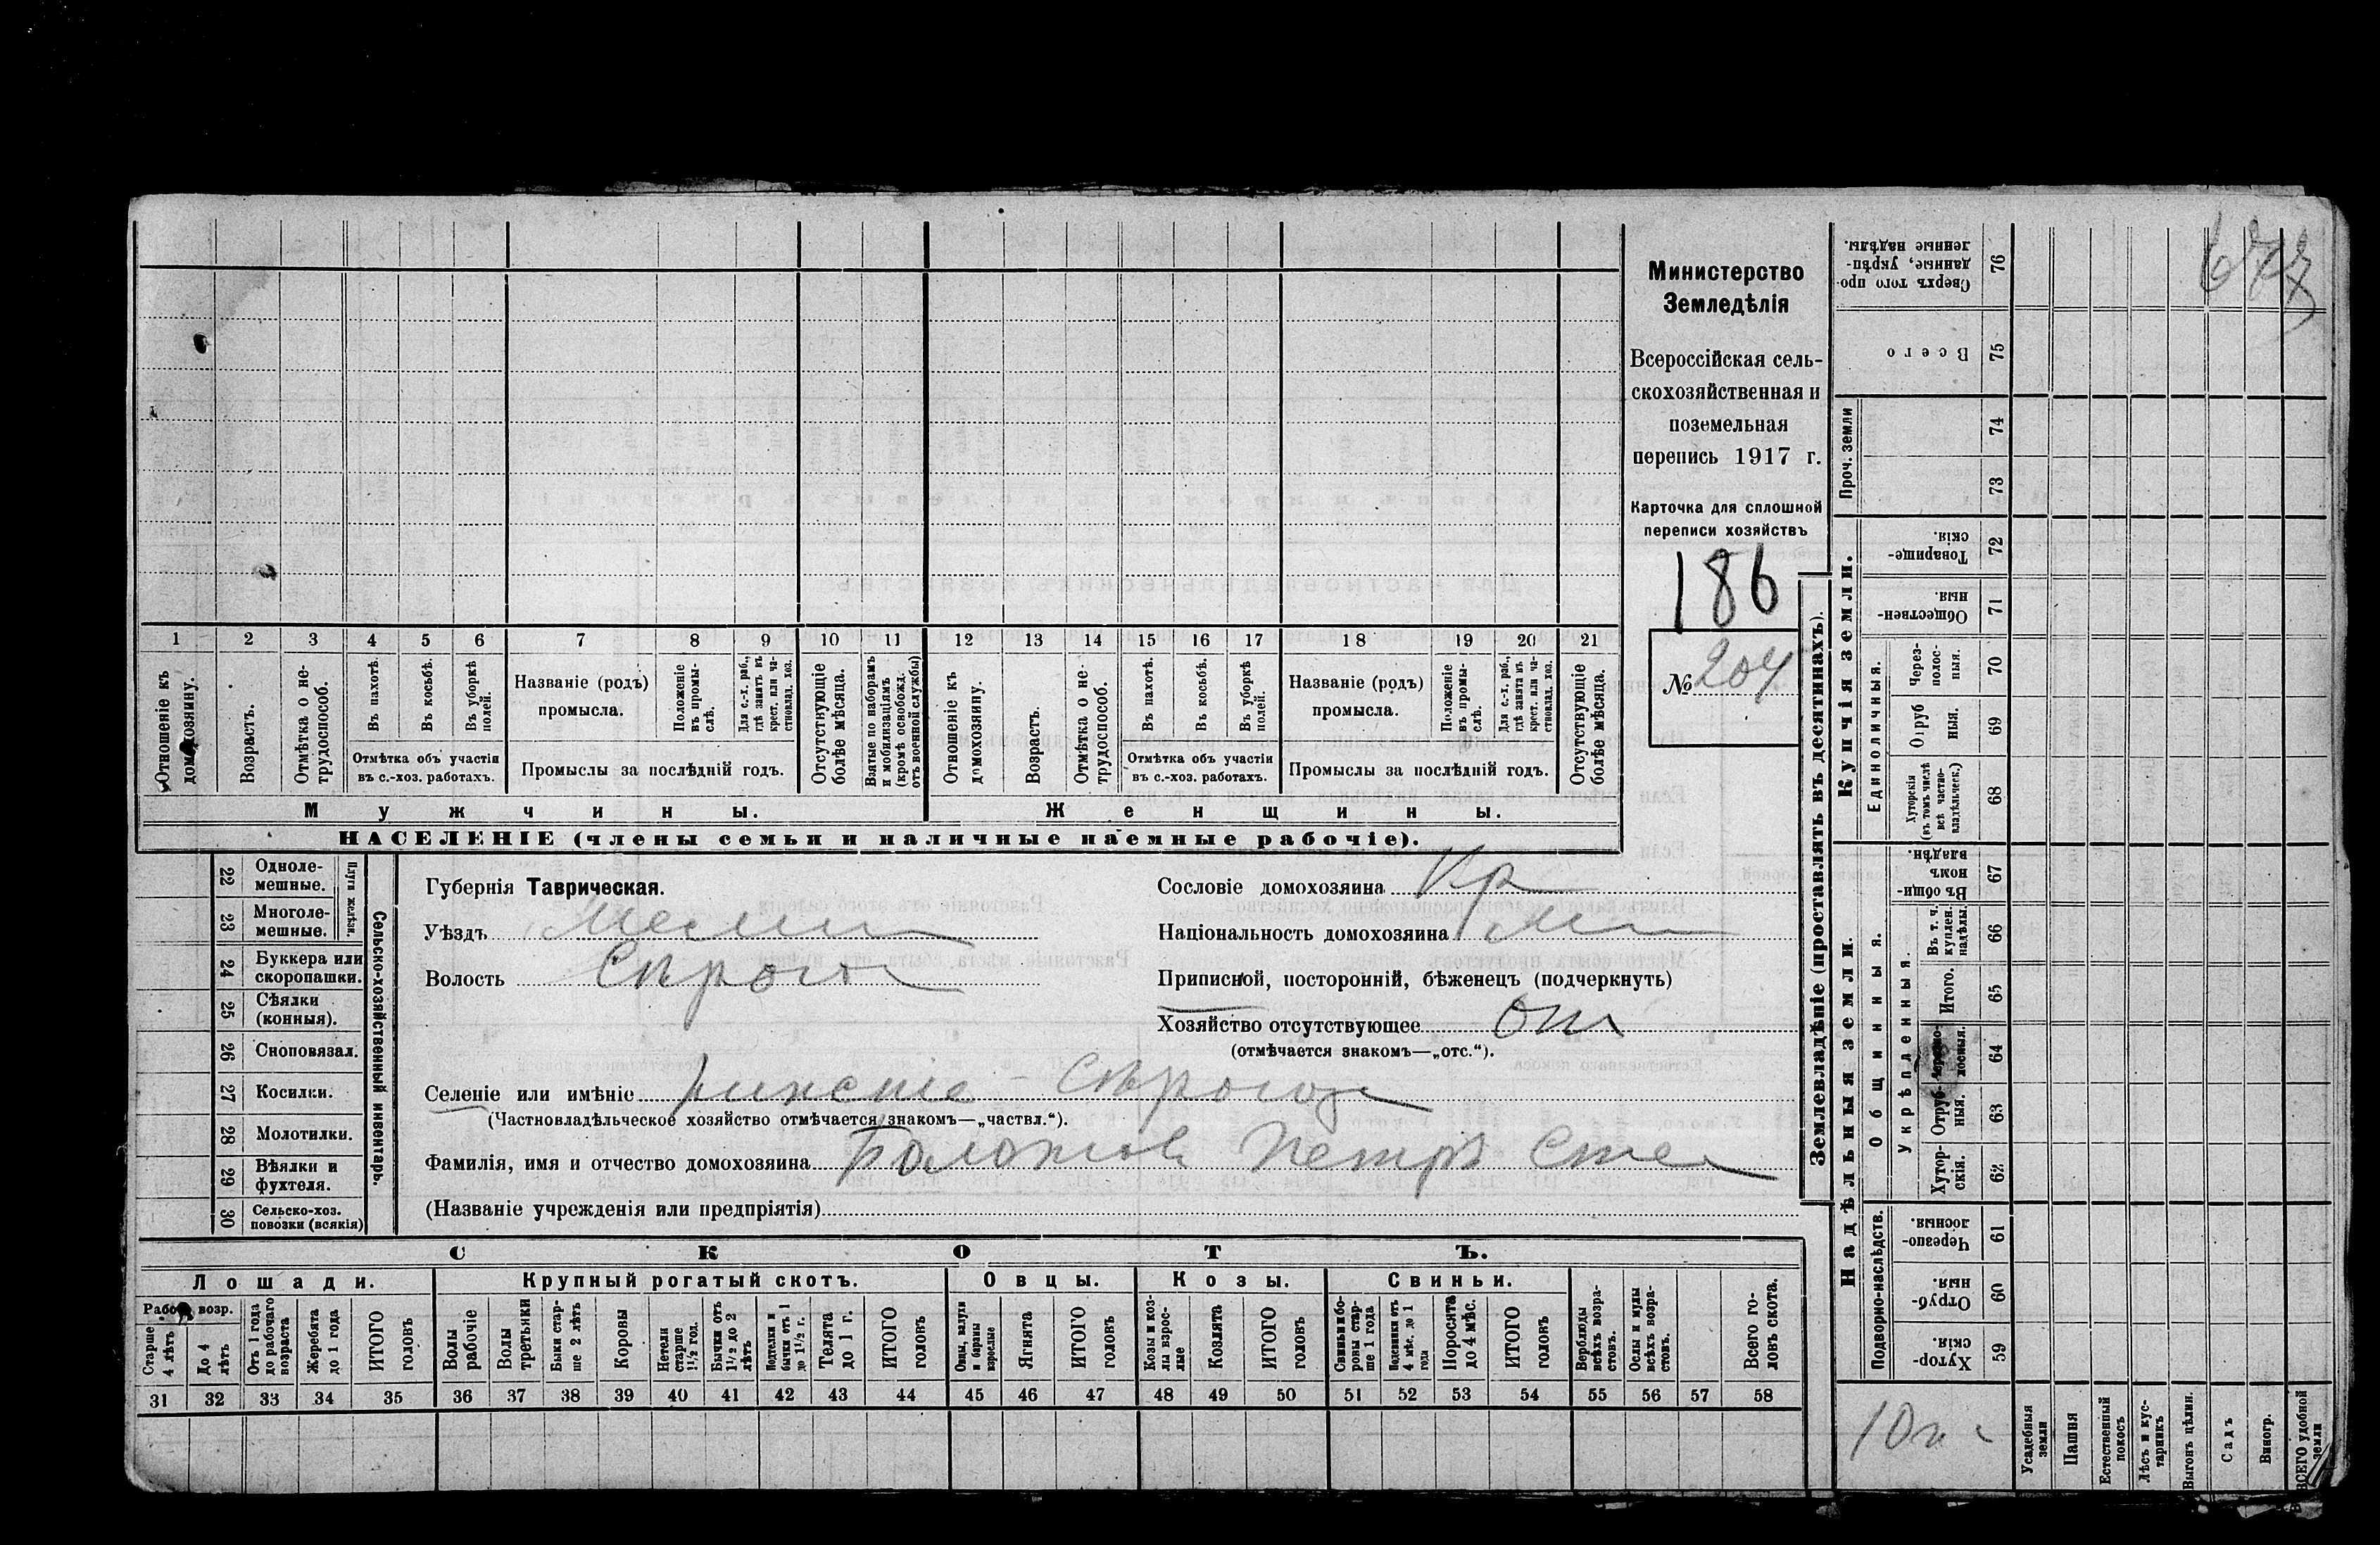 677
Министерство
Земледѣлія
Всероссійская сель-
скохозяйственная и
поземельная
перепись 1917 г.
Карточка для сплошной
переписи хозяйствъ
186
№ 204
1 2 3 4 5 6 7 8 9 10 11 12 13 14 15 16 17 18 19 20 21
Отношеніе къ домохозяину.
Возрастъ.
Отмѣтка о не-трудоспособ.
Въ пахотѣ.
Въ косьбѣ.
Въ уборкѣ полей.
Отмѣтка объ участіи
въ с.-хоз. работахъ.
Названіе (родъ)
промысла.
Положеніе въ промы-слѣ.
Для с.-х. раб., гдѣ занятъ въ крест. или ча-стновлад. хоз.
Промыслы за послѣдній годъ.
Отсутствующіе болѣе мѣсяца.
Взятые по наборамъ и мобилизаціямъ (кромѣ освобожд. отъ военной службы)
Отношеніе къ домохозяину.
Возрастъ.
Отмѣтка о не-трудоспособ.
Въ пахотѣ.
Въ косьбѣ.
Въ уборкѣ полей.
Отмѣтка объ участіи
въ с.-хоз. работахъ.
Названіе (родъ)
промысла.
Положеніе въ промы-слѣ.
Для с.-х. раб., гдѣ занята въ крест. или ча-стновлад. хоз.
Промыслы за послѣдній годъ.
Отсутствующіе болѣе мѣсяца.
Мужчины.
Женщины.
НАСЕЛЕНІЕ (члены семьи и наличные наемные рабочіе).
22 Одноле-мешные.
23 Многоле-мешные.
Плуги желѣзн.
24 Буккера или скоропашки.
25 Сѣялки (конныя).
26 Сноповязал.
27 Косилки.
28 Молотилки.
29 Вѣялки и фухтеля.
30 Сельско-хоз. повозки (всякія)
Сельско-хозяйственный инвентарь.
Губернія Таврическая.
Уѣздъ Мелит
Волость Сѣрогоз
Сословіе домохозяина Кр
Національность домохозяина
Приписной, посторонній, бѣженецъ (подчеркнуть)
Хозяйство отсутствующее отс
(отмѣчается знакомъ—„отс.“).
Селеніе или имѣніе Нижніе - Сѣрогозы
(Частновладѣльческое хозяйство отмѣчается знакомъ—„частвл.“).
Фамилія, имя и отчество домохозяина Петръ Степ
(Названіе учрежденія или предпріятія)
СКОТЪ.
Лошади. Крупный рогатый скотъ. Овцы. Козы. Свиньи.
Рабоч. возр.
Старше 4 лѣтъ
До 4 лѣтъ
Отъ 1 года до рабочаго возраста
Жеребята до 1 года
ИТОГО головъ
Волы рабочіе
Волы третьяки
Быки стар-ше 2 лѣтъ
Коровы
Нетели старше 1½ год.
Бычки отъ 1½ до 2 лѣтъ
Подтелки и бычки отъ 1 до 1½ г.
Телята до 1 г.
ИТОГО головъ
Овцы, валухи и бараны взрослые
Ягнята
ИТОГО головъ
Козы и коз-лы взрос-лые
Козлята
ИТОГО головъ
Свиньи и бо-ровы стар-ше 1 года
Подсвинки отъ 4 мѣс. до 1 года
Поросята до 4 мѣс.
ИТОГО головъ
Верблюды всѣхъ возра-стовъ.
Ослы и мулы всѣхъ возра-стовъ.
Всего го-ловъ скота.
31 32 33 34 35 36 37 38 39 40 41 42 43 44 45 46 47 48 49 50 51 52 53 54 55 56 57 58
Землевладѣніе (проставлять въ десятинахъ).
Сверхъ того про-данные, укрѣп-ленные надѣлы. 76
Всего 75
Проч. земли 74 73
Купчія земли.
Товарище-скія. 72
Обществен-ныя. 71
Единоличныя.
Через-полос-ныя. 70
Отруб-ныя. 69
Хуторскія (въ томъ числѣ всѣ частно-владѣльческ.) 68
Надѣльныя земли.
Общинныя.
Въ общин-номъ владѣн. 67
Укрѣпленныя.
Въ т. ч. куплен. надѣлы. 66
Итого. 65
Черезпо-лосныя. 64
Отруб-ныя. 63
Хутор-скія. 62
Подворно-наслѣдств.
Черезпо-лосныя. 61
Отруб-ныя. 60
Хутор-скія. 59
Усадебныя земли
Пашня
Естественный покосъ
Лѣсъ и кус-тарникъ
Выгонъ цѣлин.
Садъ
Виногр.
ВСЕГО удобной земли